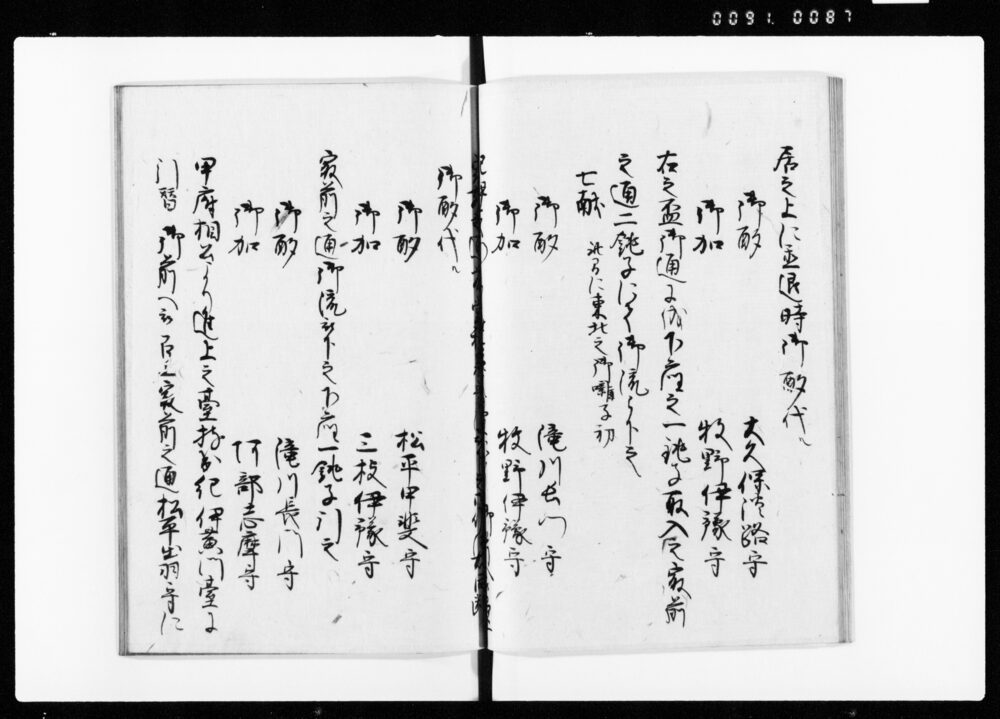 0091.0087
居之上に置退時御酌代ル
御酌 大久保淡路守
御加 牧野伊豫守
右之盃御通ニ成下座之一銚子取入是最前
之通二銚子ニ而御流被下之
七献 此间に東北之御囃子初
御酌 滝川長門守
御加 牧野伊豫守
御酌代ル
御酌 松平甲斐守
御加 三枝伊豫守
最前之通御流被下之下座一銚子引之
御酌 滝川長門守
御加 阿部志摩守
甲府相公より進上之臺持出紀伊黄門臺ニ
引替御前へ 最前之通松平出羽守に